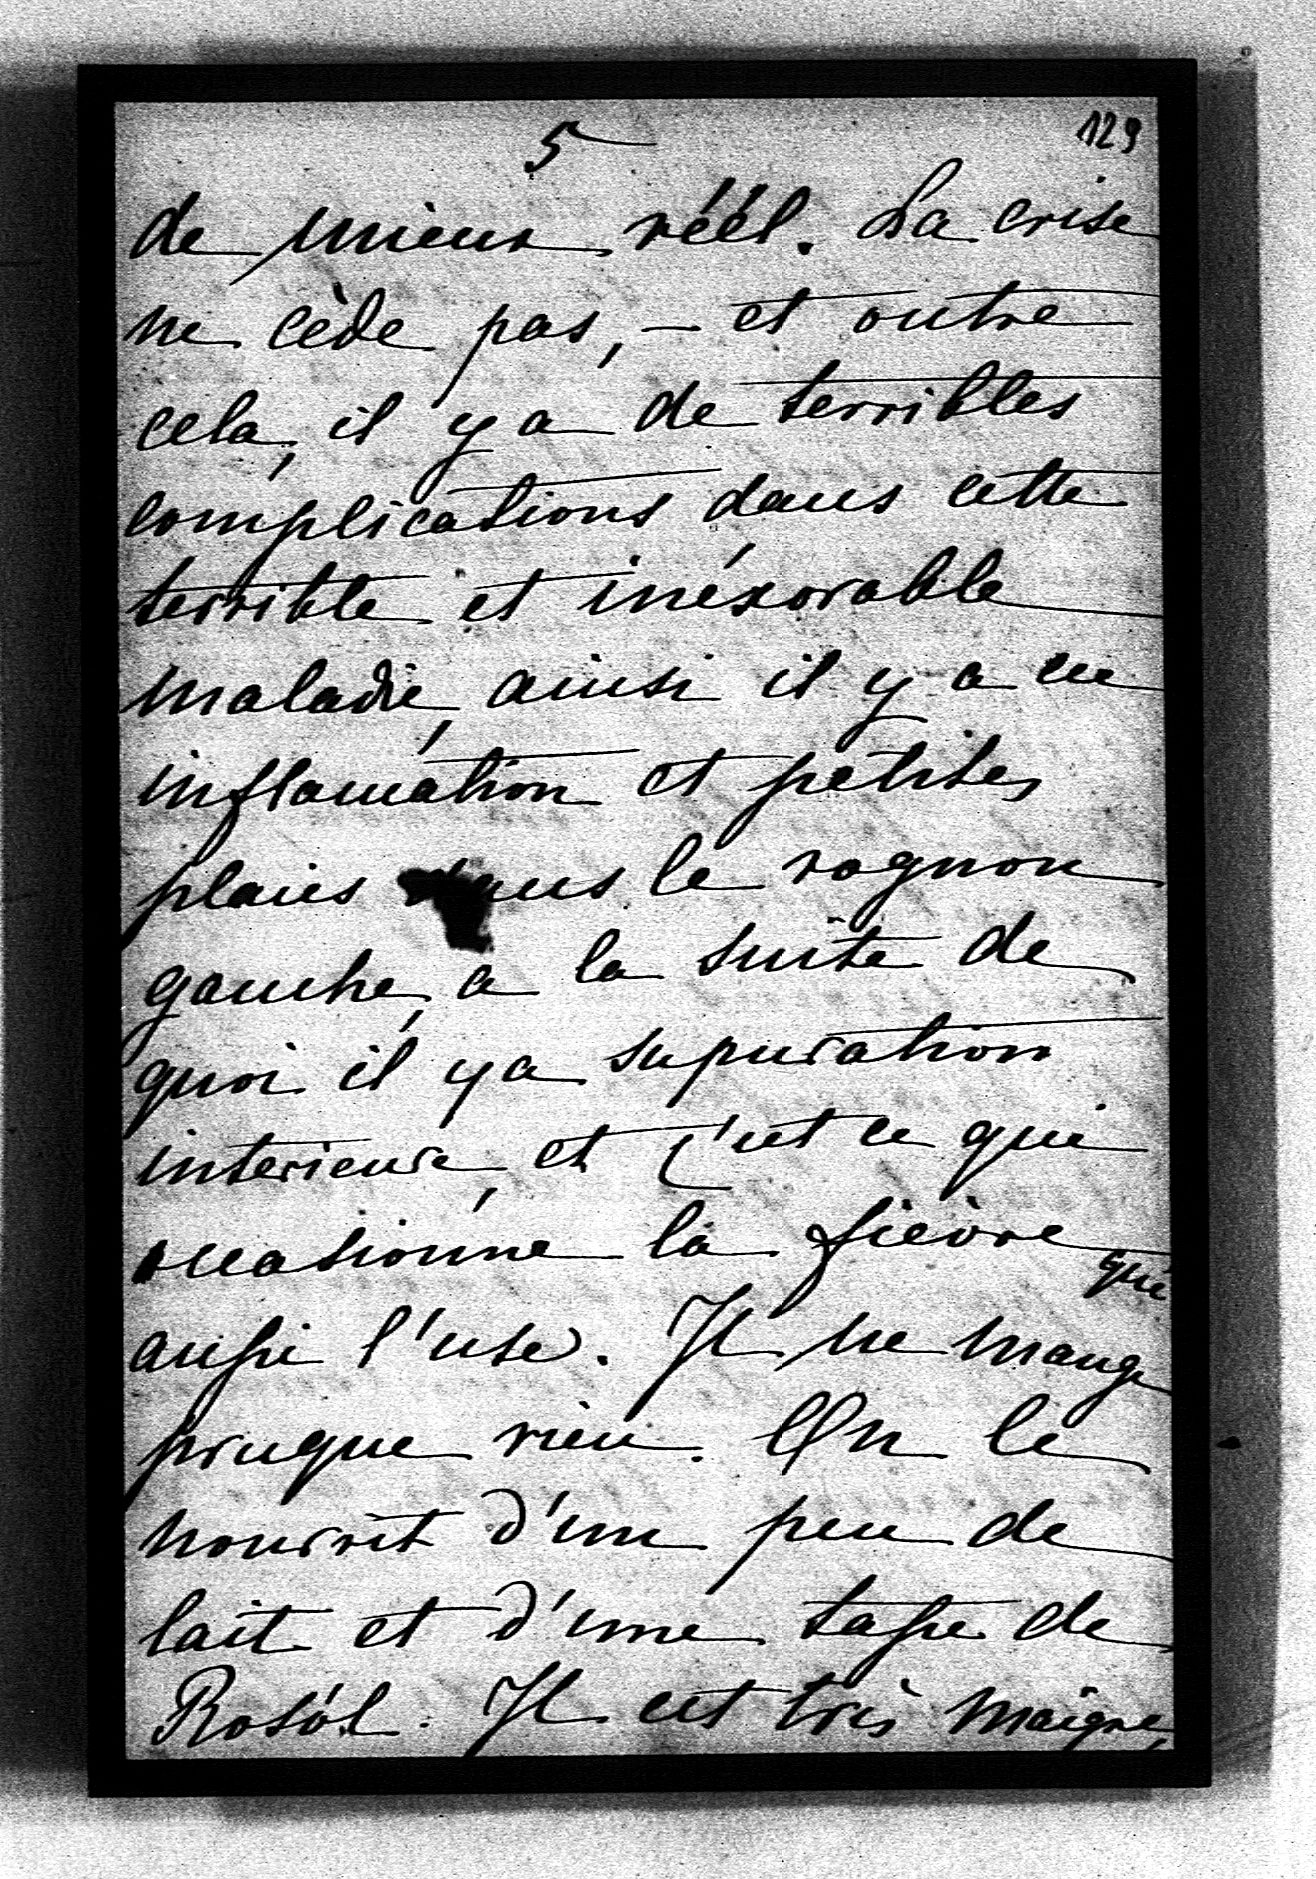 5
129
de mieux réél. La crise
ne cède pas, – et outre
cela, il y a de terribles
complications dans cette
terrible et inéxorable
maladie, ainsi il y a eu
inflamation et petites
plaies dans le rognon
gauche, a la suite de
quoi il y a supuration
interieure, et c'est ce qui
occasionne la fièvre qui
aussi l'use. Il ne mange
presque rien. On le
nourrit d'un peu de
lait et d'une tasse de
Rosół. Il est très maigre,